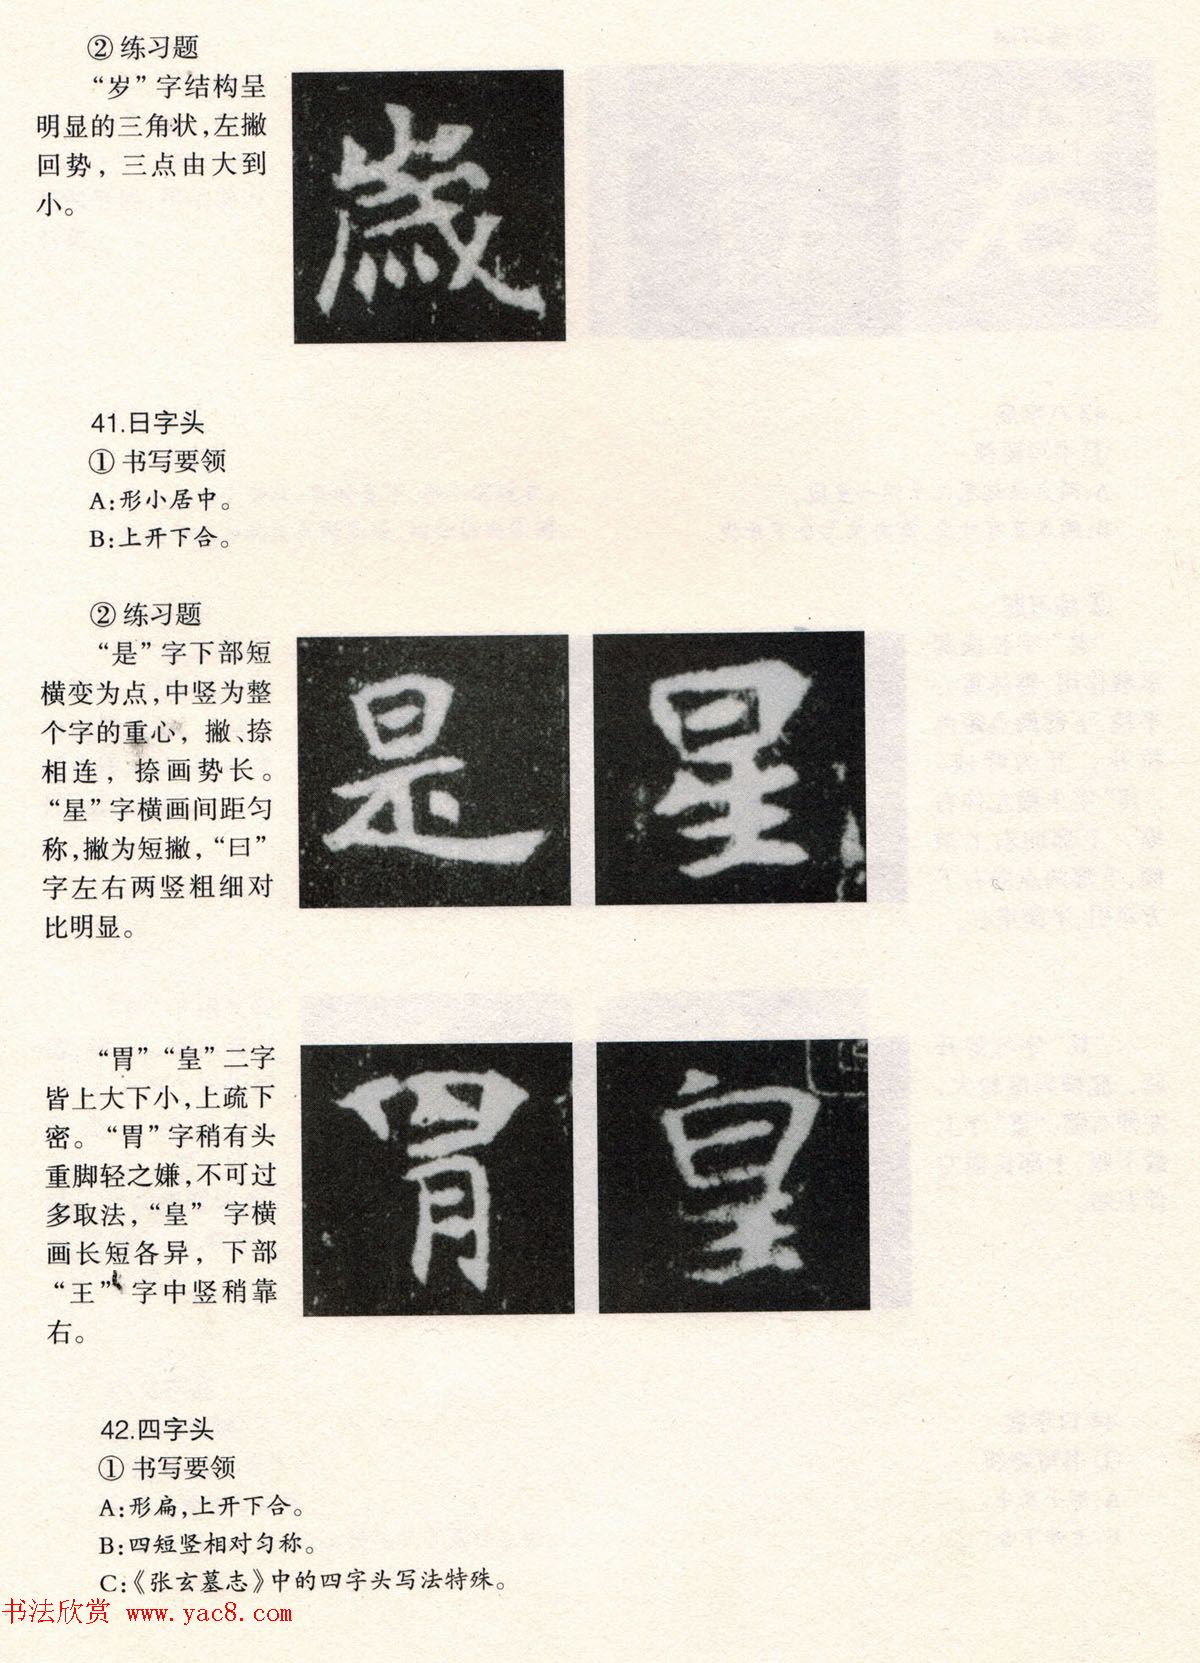 ② 练习题
“岁”字结构呈
明显的三角状,左撇
回势，三点由大到
小。
歲
41.日字头
① 书写要领
A:形小居中。
B:上开下合。
② 练习题
“是”字下部短
横变为点,中竖为整
个字的重心，撇、捺
相连，捺画势长。
“星”字横画间距匀
称,撇为短撇，“曰”
字左右两竖粗细对
比明显。
是
星
“胃”“皇”二字
皆上大下小,上疏下
密。“胃”字稍有头
重脚轻之嫌,不可过
多取法，“皇”字横
画长短各异，下部
“王”字中竖稍靠
右。
胃
皇
42.四字头
① 书写要领
A:形扁,上开下合。
B:四短竖相对匀称。
C:《张玄墓志》中的四字头写法特殊。
书法欣赏 www.yac8.com